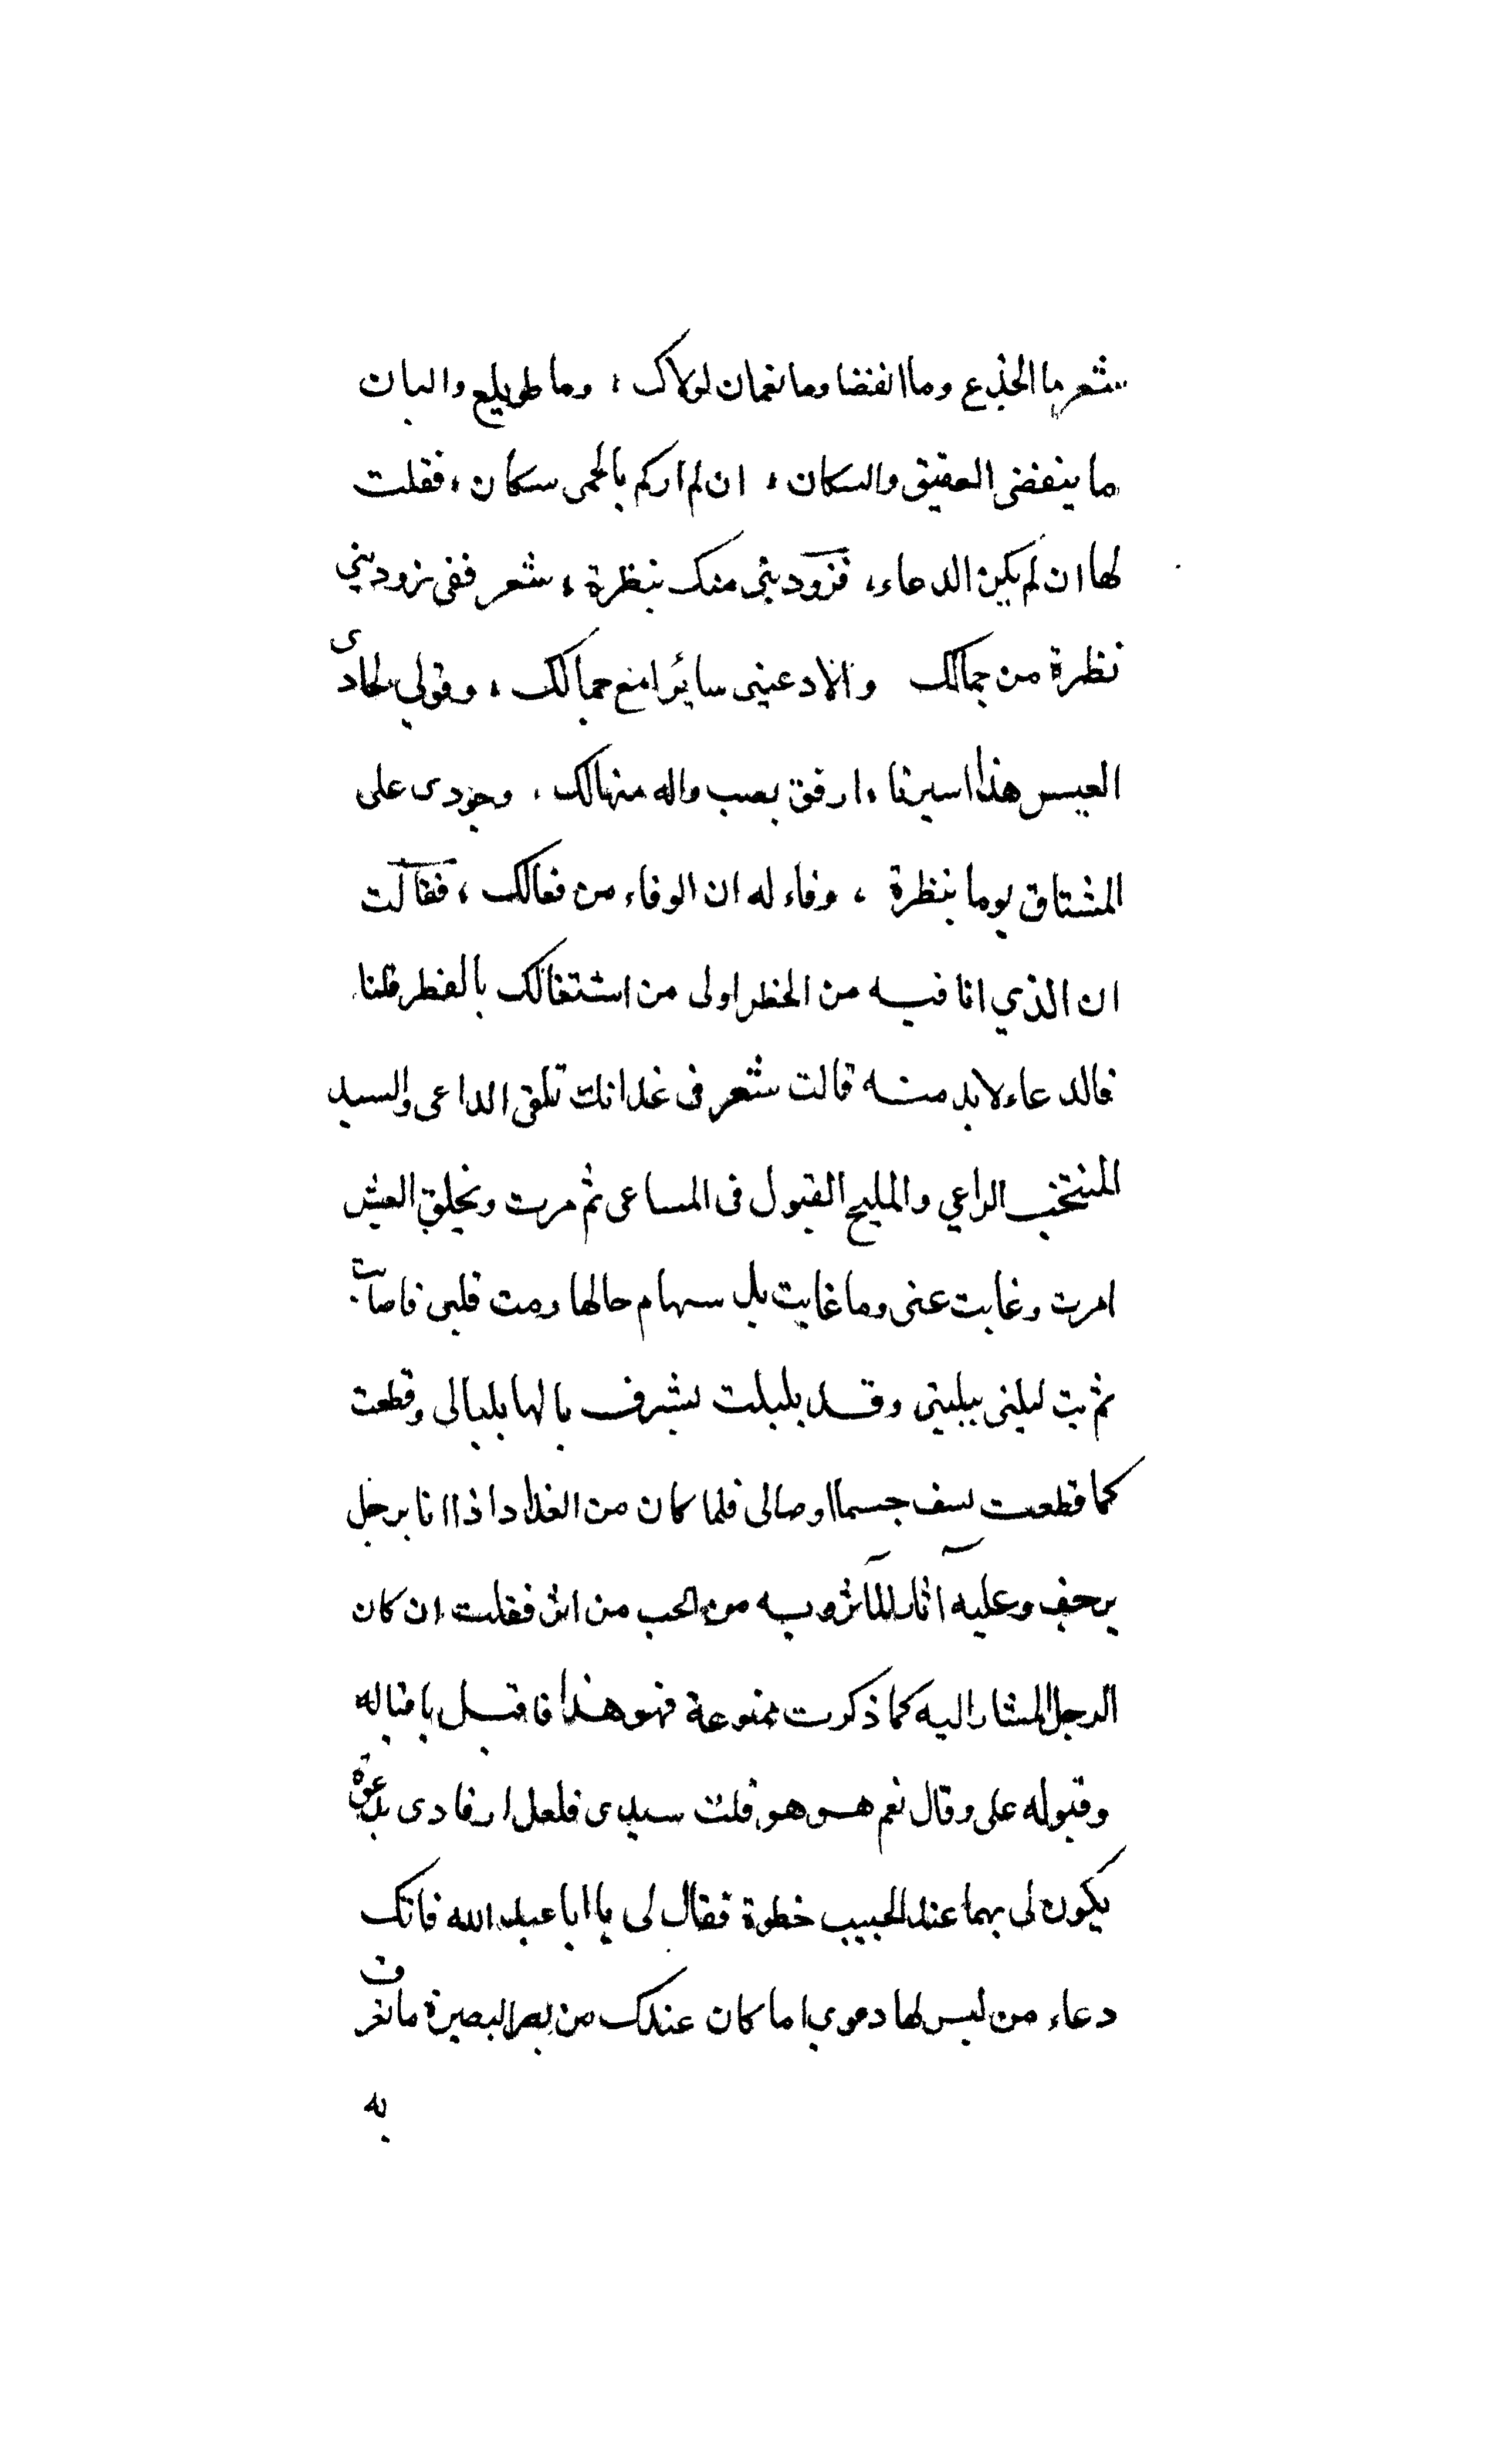 شعر ما الجذع وما انفضا وما نعمان لولاك ، وما طويلع والبان
ما ينفضى العقيق والسكان ، ان لم اركم بالحمى سكان ، فقلت
لها ان لم يكن الدعاء ، فزوديني منك بنظرة ، شعر قفى زوديني
نظرة من جمالك والا دعينى سائرا مع جمالك ، وقولي لحادى
العيس هذا اسيرنا ، ارفق بصب واله متهالك ، وجودى على
المشتاق يوما بنظرة ، وفاء له ان الوفاء من فعالك ، فقالت
ان الذي انا فيه من الخطر اولى من اشتغالك بالفطر قلنا
فالدعاء لابد منه قالت شعر فى غد انك تلقى الداعى والسيد
المنتخب الراعي والمليح القبول فى المساعى ثم مرت وبحلق العيش
امرت وغابت عنى وما غابت بل سهام حالها رمت قلبى فاصابت
ثم بت ليلتى ببليتى وقد بلبلت بشرف بالها بلبالى وقطعت
كما قطعت بسف جسما اوصالى فلما كان من الغد اذا انا برجل
يرحف وعليه آثار المآثر وبه من الحب من اثر فقلت ان كان
الرجل المشار اليه كما ذكرت ممنوعة فهو هذا فاقبل باقباله
وقبوله على وقال نعم هو هو قلت سيدى فلعل ارفادى بدعوة
يكون لى بهما عند الحبيب خطوة فقال لى يا ابا عبد الله فاتك
دعاء من ليس لها دعوي اما كان عندك من بصر البصيرة ما تفرق
به